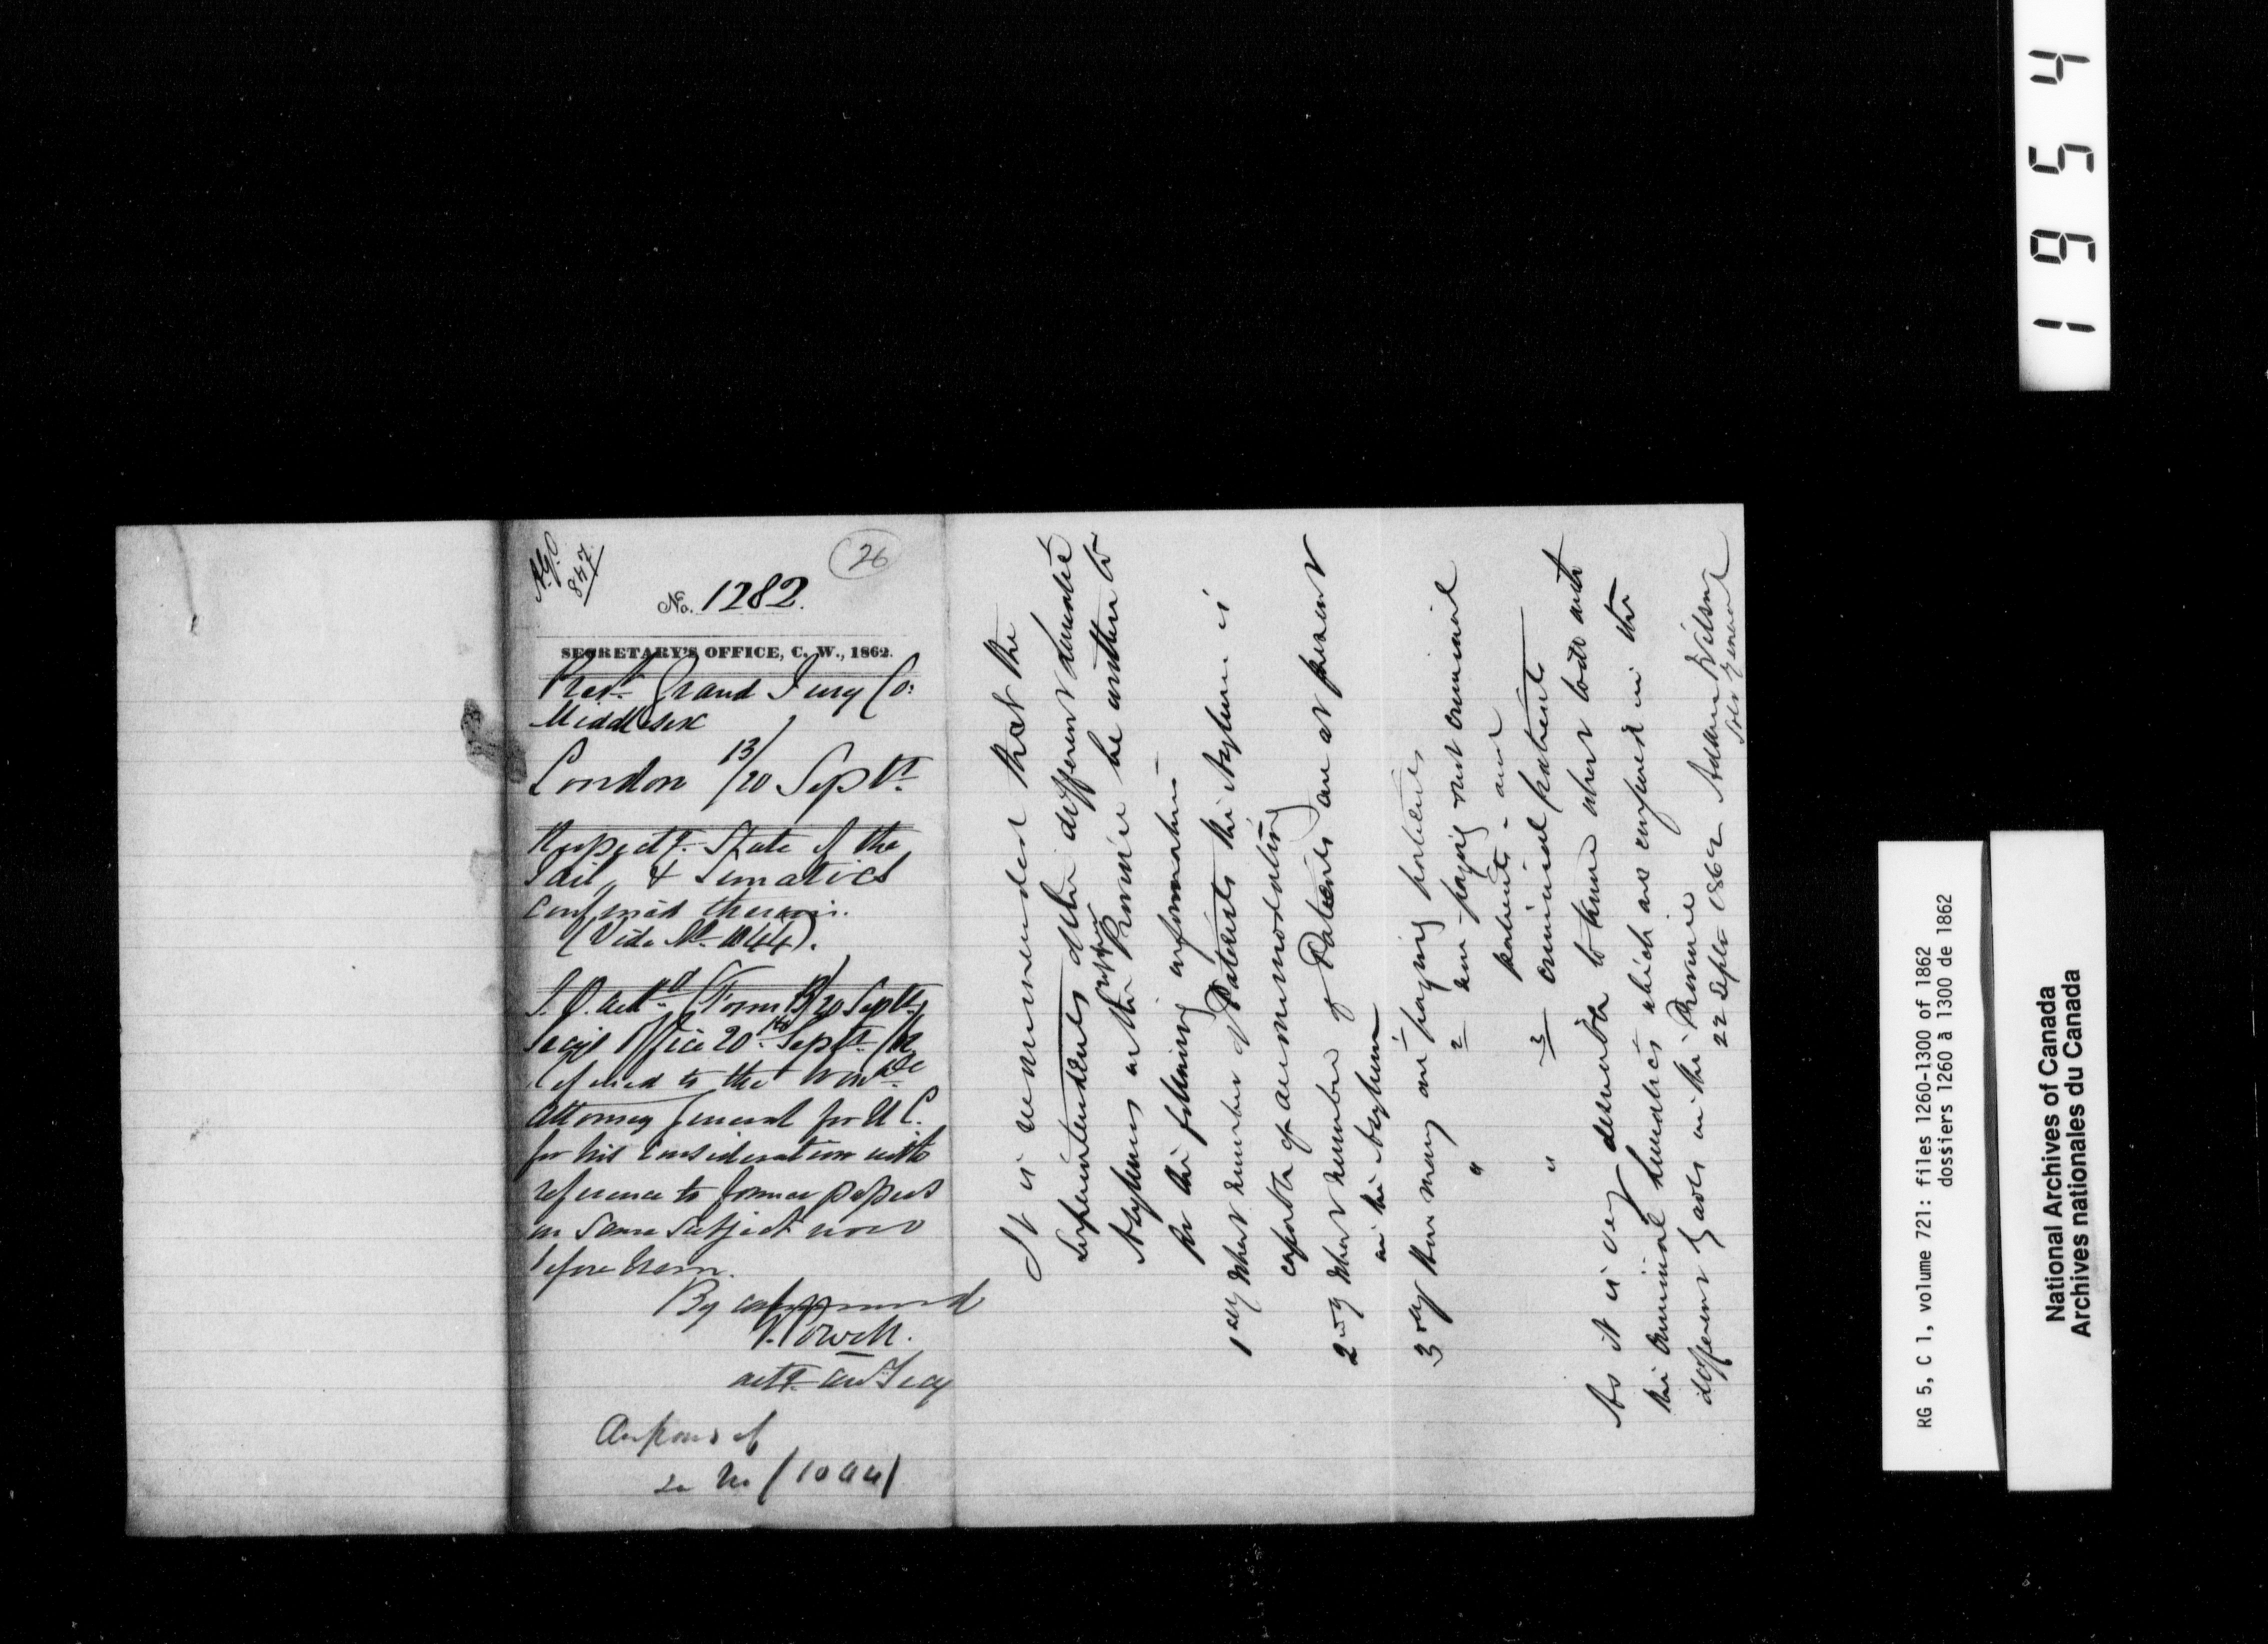 A.G.O
847
26
No. 1282.
SECRETARY'S OFFICE, C. W., 1862.
Presᵗ Grand Jury Co:
Middlesex
London 13/20 Septʳ
Respectᵍ State of the
Jail, & Lunatics
confined therein.
(Vide No 1044).
(Form B) 20 Septʳ
Secy's Office 20th Septʳ /62
Referred to the Honᵇˡᵉ
Attorney General for U C.
for his consideration with
reference to former papers
on same subject now
before him.
By command
actᵍ Asst Secy
Disposed of
in No (1044)
It is recommended that the
Superintendents of the different Lunatic
Asylums in the Upper Province be written to
for the following information
1stly What number of Patients the Asylum is
capable of accommodating
2ndly What number of Patients are at present
in the Asylum
3rdly How many are 1 paying patients
" 2 non-paying not criminal
patients - and
" 3 criminal patients
As it is very desirable to know what to do with
the criminal lunatics which are confined in the
different Gaols in the Province
22 Septr 1862 Adam Wilson
Solr General
1954
RG 5, C 1, volume 721: files 1260-1300 of 1862
dossiers 1260 à 1300 de 1862
National Archives of Canada
Archives nationales du Canada